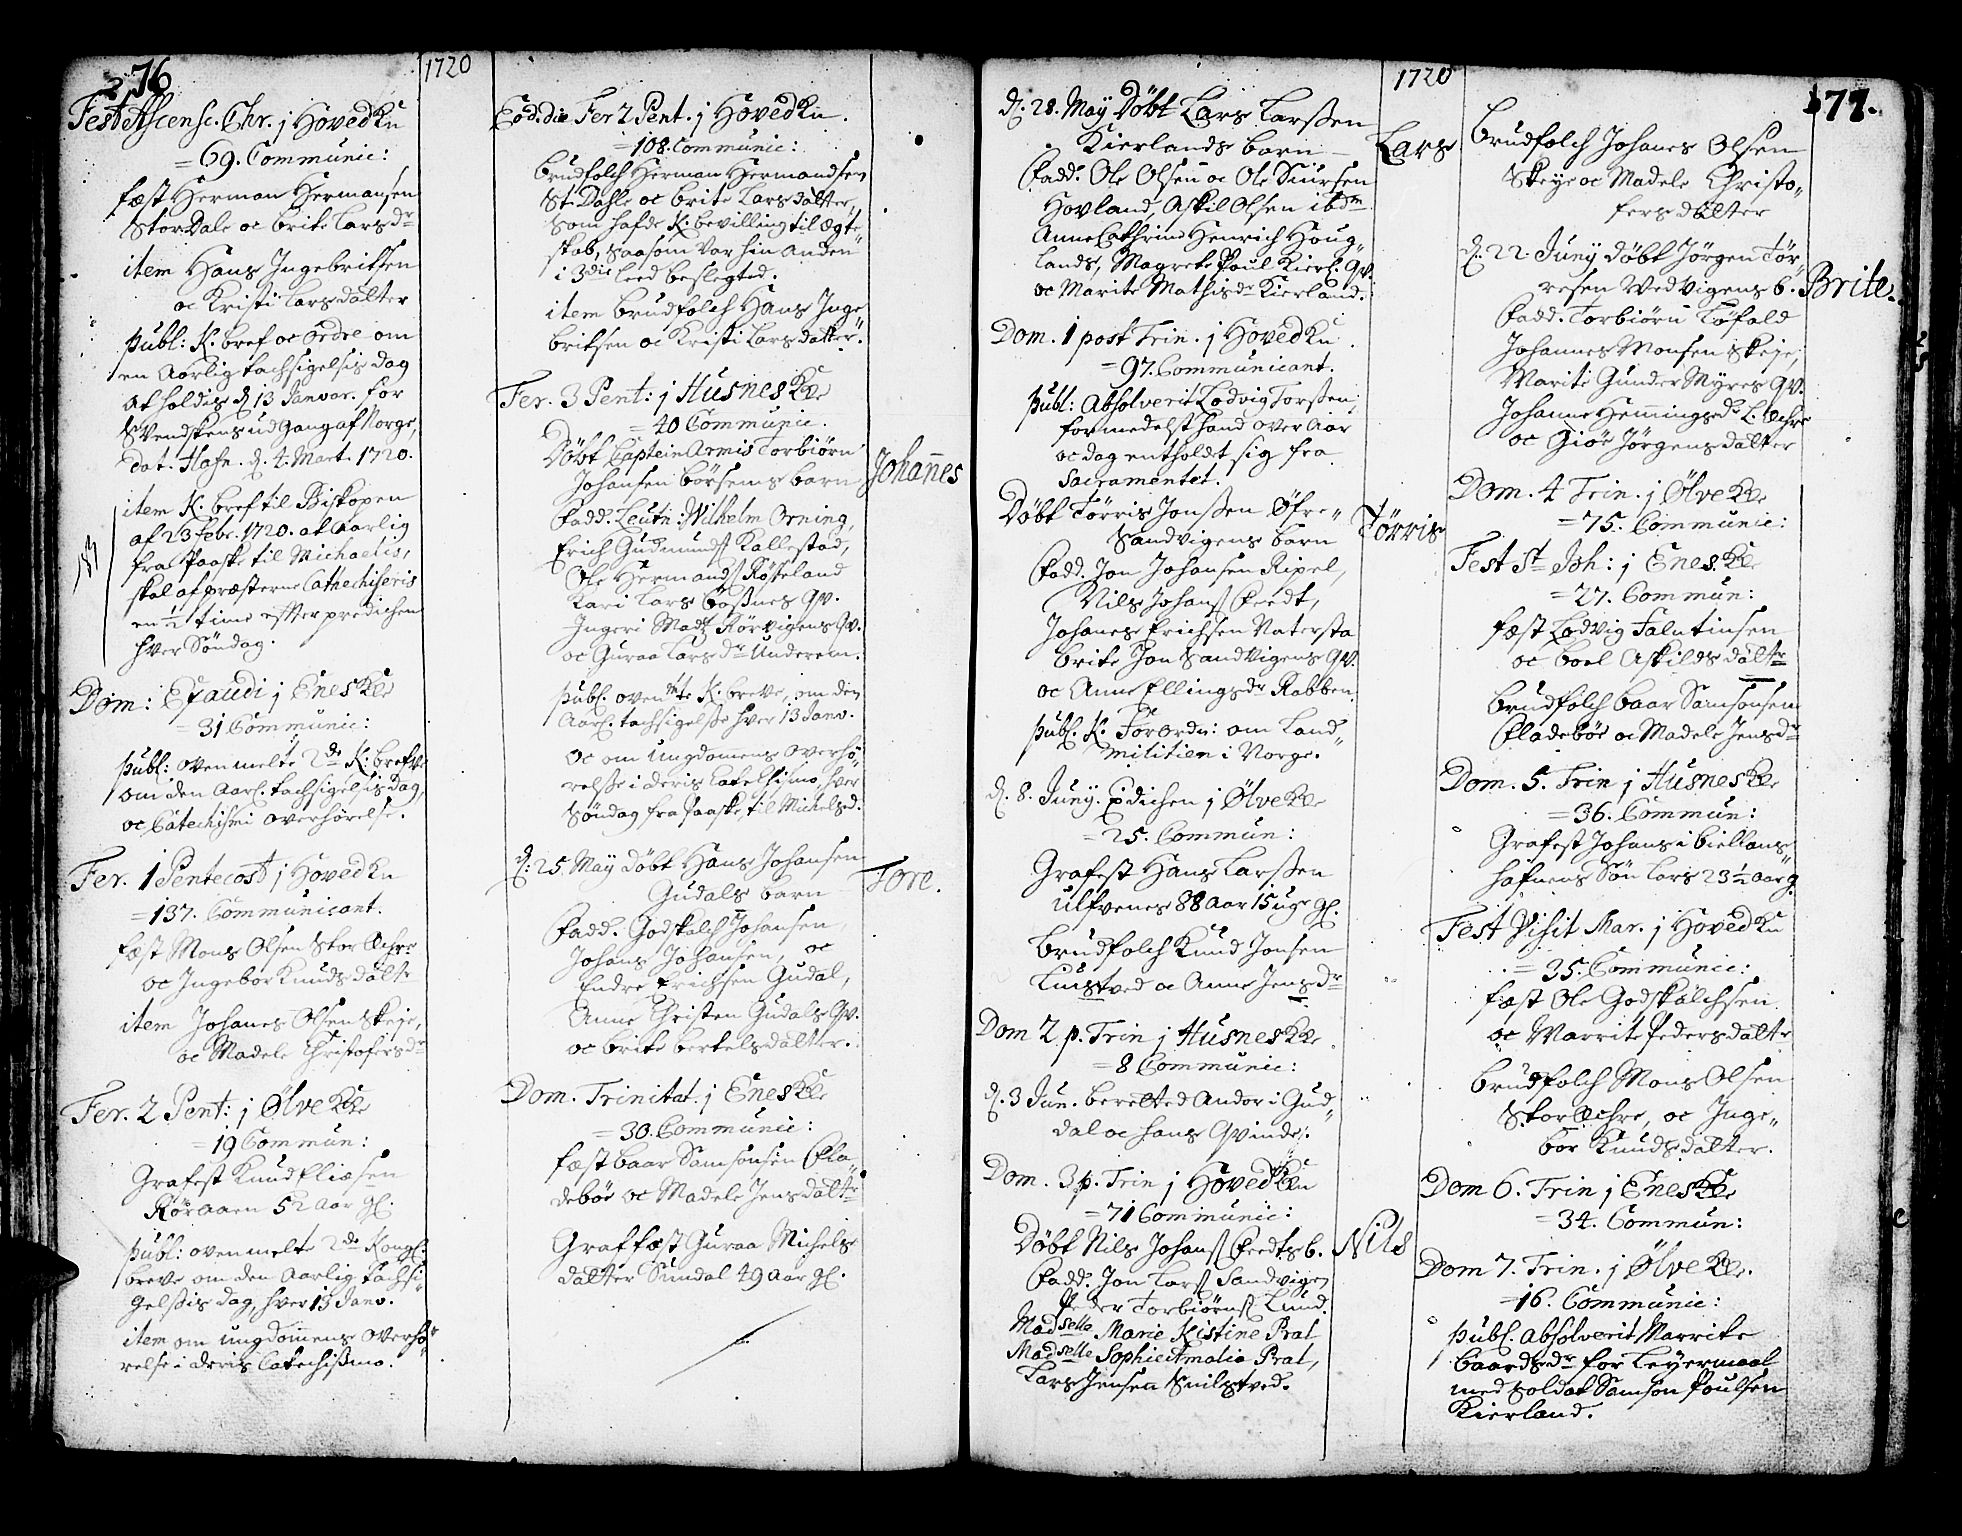 276
1720
Fest Ascensc. Chr. j Hovedku
= 69. Communic:
fæst Herman Hermansen
Stor Dale oc brite Larsdr
item Hans Ingebritsen
oc Kristi Larsdatter
publ: K. bref oc Ordre om
en Aarlig tachsigelsis dag
at holdis d 13 Janvar. for
Svendskens udgang af Norge,
dat. Hafn. d. 4. Mart. 1720.
item K. bref til Biskopen
af 23 Febr. 1720. at aarlig
fra Paaske til Michaelis,
skal af præsterne Catechiseris
en ½ time effter predichen
hver Søndag.
Dom: Exaudi j Enes Kle
= 31 Communic:
publ: ovenmelte 2de K: brefve
om den Aarl. tachsigelsis dag,
oc Catechismi overhørelse.
Fer. 1 Pentecost j Hovedku
= 137. Communicant.
fæst Mons Olsen Stor Æchre
oc Ingebor Knudsdatt
item Johanes Olsen Skeje,
oc Madele Christofersdr
Fer. 2 Pent: j Ølve Kle
= 19 Commun:
Grafest Knud Eliæsen
Røraaen 52 aar gl.
publ: ovenmelte 2de Kongl.
breve om den Aarlig tachsi
gelssis dag, hver 13 Janv.
item om ungdomens overhø
relse i deris Catechissmo.
Eod. die Fer 2 Pent. j Hovedku.
= 108. Communic:
brudfolch Herman Hermandsen
St. Dahle oc brite Larsdatter,
som hafde K: bevilling til Ægte
skab, saasom var hin anden
i 3die leed beslegted.
item brudfolch Hans Inge
britsen oc Kristi Larsdatter.
Fer. 3 Pent: j Husnes Kle
= 40 Communic.
Døbt Captein Armis Torbiørn
Johansen børsems barn
Johanes
fadd. Leutn: Wilhelm Orning,
Erich Gudmunds Kallestad,
Ole Hermands Røseland
Kari Lars Opsnes Qv.
Ingeri Mads Rørvigens Qv.
oc Guraa Larsdr Underem.
publ. ovenmte K. breve, om den
Aarl. tachsigelsse hver 13 Janv.
oc om ungdomens overhø
relsse i deris Catechismo, hver
Søndag fra Paaske til Michelsd:
d: 25 May døbt Hans Johansen
Gudals barn
Tore.
fadd. Godskalch Johansen,
Johans Johansen, oc
Endre Erichsen Gudal,
Anne Christen Gudals Qv.
oc brite bertelsdatter.
Dom. Trinitat. j Enes Kle
= 30. Communic:
fæst baar Samsonsen Fla
debøe oc Madele Jensdattr
Graffæst Guraa Michels
datter Sundal 49 aar gl.
1720
277.
d. 28. May Døbt Lars Larssen
Kierlands barn
Lars
fadd. Ole Olsen oc Ole Siursen
Hovland, Askil Olsen ibdm
Anne Cathrine Henrich Houg
lands, Magrete Poul Kierl. Qv.
oc Marite Mathisdr Kierland.
Dom. 1 post Trin. j Hovedku.
= 97. Communicant.
publ: Absolverit Lodvig Torssen,
formedelst hand over aar
oc dag entholdt sig fra
Sacramentet.
Døbt Tørris Jonssen Øfre
Sandvigens barn
Tørris
fadd. Jon Johansen Ripel,
Nils Johans Feedt,
Johanes Erichsen Natersta
brite Jon Sandvigens Qv.
oc Anne Ellingsdr Rabben
publ. K. Forordn: om Land
militien i Norge.
d. 8. Juny. Edichen j Ølve Kle
= 25. Commun:
Grafest Hans Larssen
Ulfvenes 88 Aar 15 uge gl.
brudfolch Knud Jonsen
Luistved oc Anne Jensdr
Dom 2 p. Trin j Husnes Kle
= 8 Communic:
d. 3 Jun. berelted Andor i Gud
dal oc hans Qvinde:
Dom. 3 p. Trin j Hovedku
= 71 Communic:
Døbt Nils Johans Feedts b.
Nils
fadd. Jon Lars Sandvigen
Peder Torbiørns Lund.
Madselle Marie Kistine Prat
Madselle Sophie Amalia Prat,
Lars Jensen Snilstved.
brudfolch Johanes Olsen
Skeye oc Madele Christo
fersdatter
d. 22 Juny døbt Jørgen Tør
resen Wedvigens b.
Brite.
fadd. Torbiørn Tøfald
Johannes Monsen Skeje,
Marite Gunder Myres Qv.
Johanne Hemingsdr L. Æchre
oc Giøe Jørgensdatter
Dom. 4 Trin. j Ølve Kle
= 75. Communic:
Fest St Joh: j Enes Kle
= 27. Commun:
fæst Lodvig Falutinsen
oc boel Askildsdattr
brudfolch baar Samsonsen
Fladebøe oc Madele Jensdr
Dom. 5. Trin j Husnes Kle
= 36. Commun:
Grafest Johans i biellans
hafnens Søn Lars 23½ aar g.
Fest Visit Mar. j Hovedku
= 35. Communic:
fæst Ole Godskalchsen
oc Marrite Pedersdattr
brudfolch Mons Olsen
Stor Æchre, oc Inge
bor Knudsdatter.
Dom 6. Trin j Enes Kle
= 34. Commun:
Dom 7. Trin. j Ølve Kle.
= 16. Communic:
publ. absolverit Marrite
baardsdr for Leyermaal
med soldat Samson Poulsen
Kierland.